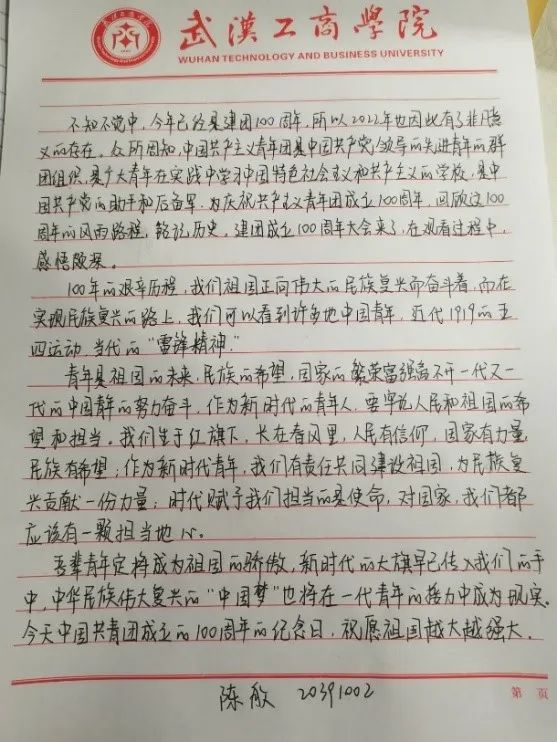 武漢工商學院
WUHAN TECHNOLOGY AND BUSINESS UNIVERSITY
不知不觉中，今年已经是建团100周年，所以2022年也因此有了非凡意
义的存在。众所周知，中国共产主义青年团是中国共产党领导的先进青年的群
团组织，是广大青年在实践中学习中国特色社会主义和共产主义的学校，是中
国共产党的助手和后备军。为庆祝共产主义青年团成立100周年，回顾这100
周年的风雨路程，铭记历史，建团成立100周年大会来了，在观看过程中，
感悟颇深。
100年的艰辛历程，我们祖国正向伟大的民族复兴而奋斗着，而在
实现民族复兴的路上，我们可以看到许多地中国青年，近代1919的五
四运动，当代的“雷锋精神”
青年是祖国的未来，民族的希望，国家的繁荣富强离不开一代又一
代的中国青年的努力奋斗，作为新时代的青年人，要牢记人民和祖国的希
望和担当。我们生于红旗下，长在春风里，人民有信仰，国家有力量，
民族有希望；作为新时代青年，我们有责任共同建设祖国，为民族复
兴贡献一份力量；时代赋予我们担当的是使命，对国家，我们都
应该有一颗担当地心。
吾辈青年定将成为祖国的骄傲，新时代的大旗早已传入我们的手
中，中华民族伟大复兴的“中国梦”也将在一代青年的接力中成为现实。
今天中国共青团成立的100周年的纪念日，祝愿祖国越大越强大。
陈敏 20391002
第 页